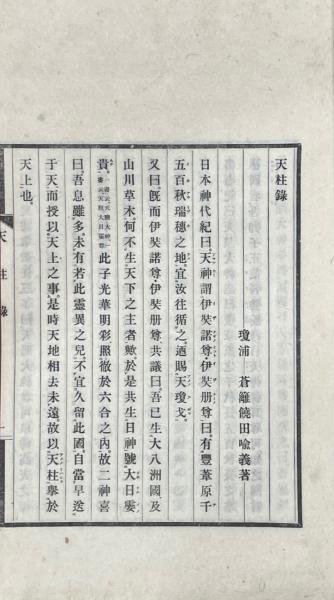 天柱錄
瓊浦　蒼龍饒田喩義著
日本神代紀曰、天神謂伊弉諾尊・伊弉册尊曰、有豐葦原千
五百秋瑞穗之地、宜汝往循之、迺賜天瓊戈、
又曰、旣而伊弉諾尊・伊弉册尊共議曰、吾已生大八洲國、及
山川草木、何不生天下之主者歟、於是共生日神、號大日孁
貴、一書云天照大神、一書云天照大日孁尊、此子光華明彩、照徹於六合之內、故二神喜
曰、吾息雖多、未有若此靈異之兒、不宜久留此國、自當早送
于天、而授以天上之事、是時天地相去未遠、故以天柱擧於
天上也、
天柱錄
一